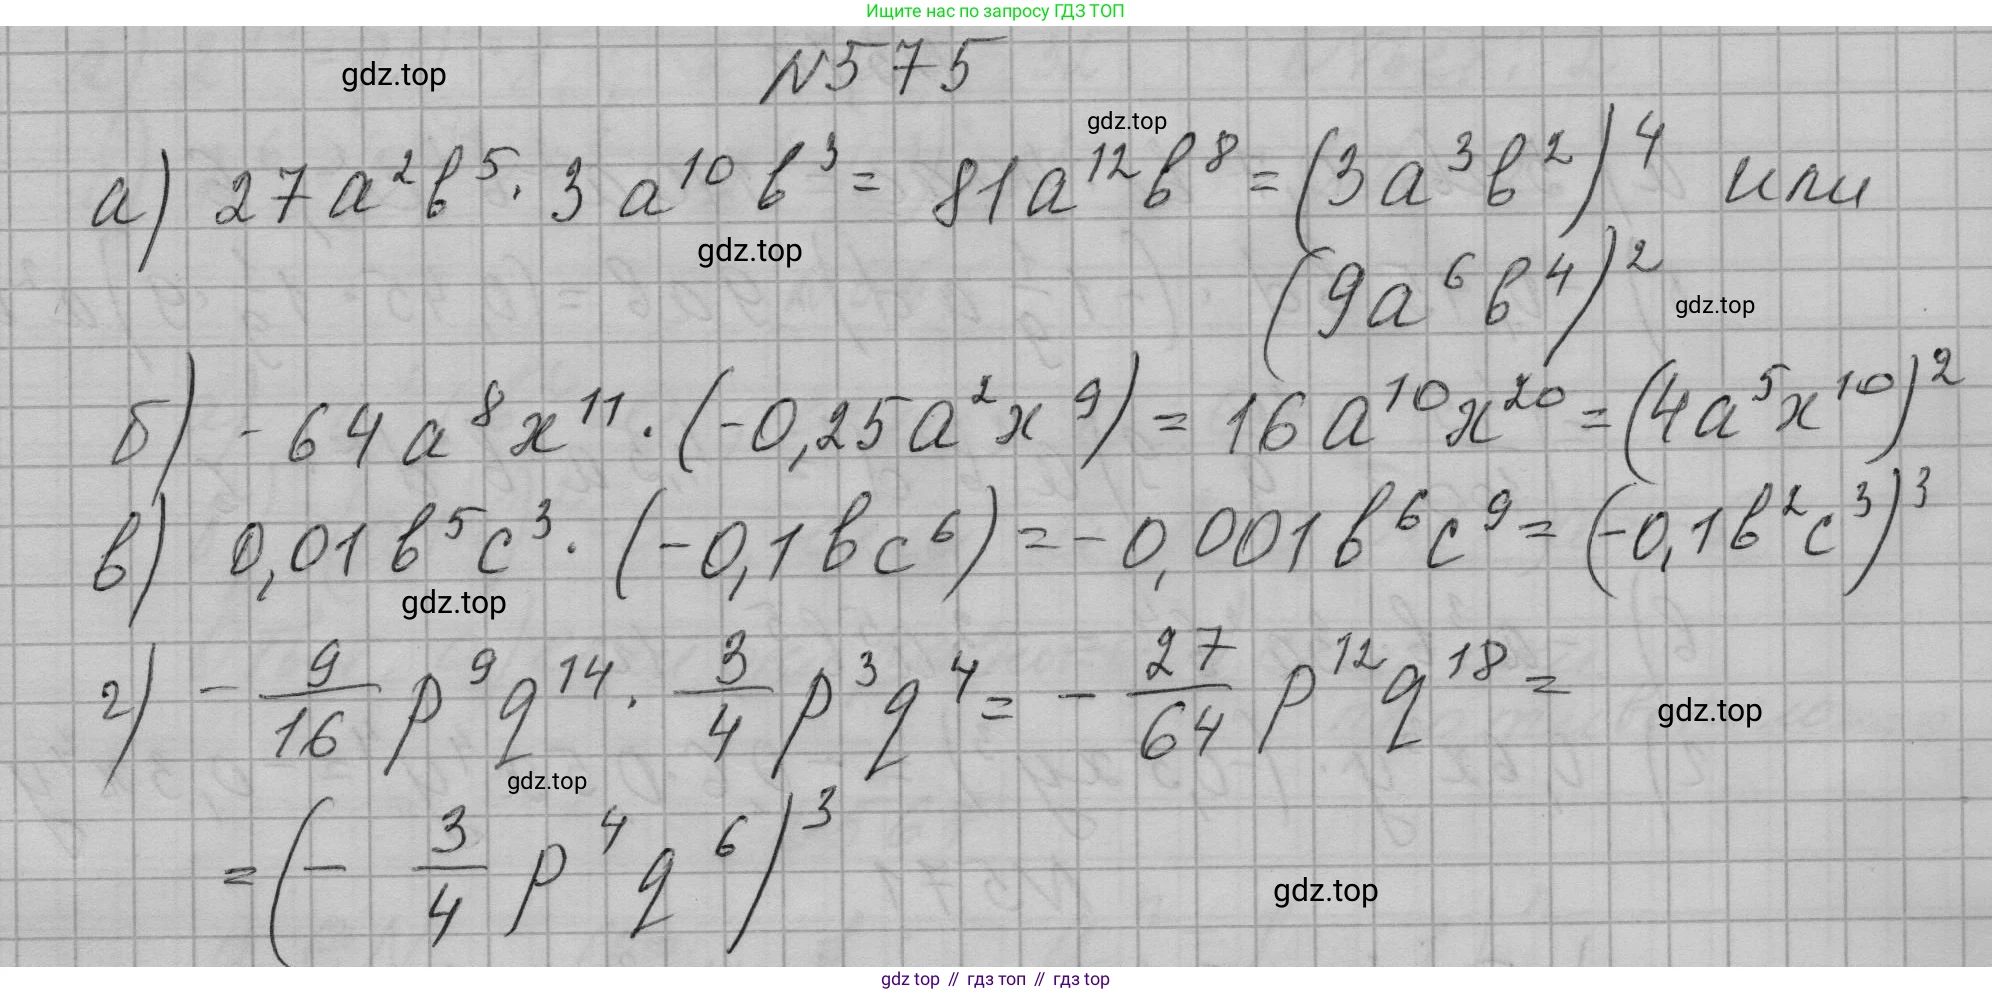 Ищите нас по запросу ГДЗ ТОП
N575
gdz.top
gdz.top
а) 27a²b⁵ · 3a¹⁰b³ = 81a¹²b⁸ = (3a³b²)⁴ или
gdz.top
(9a⁶b⁴)²
gdz.top
б) -64a⁸x¹¹ · (-0,25a²x⁹) = 16a¹⁰x²⁰ = (4a⁵x¹⁰)²
в) 0,01b⁵c³ · (-0,1bc⁶) = -0,001b⁶c⁹ = (-0,1b²c³)³
gdz.top
г) - 9/16 p⁹q¹⁴ · 3/4 p³q⁴ = - 27/64 p¹²q¹⁸ =
gdz.top
gdz.top
= (- 3/4 p⁴q⁶)³
gdz.top
gdz top // гдз топ // гдз top